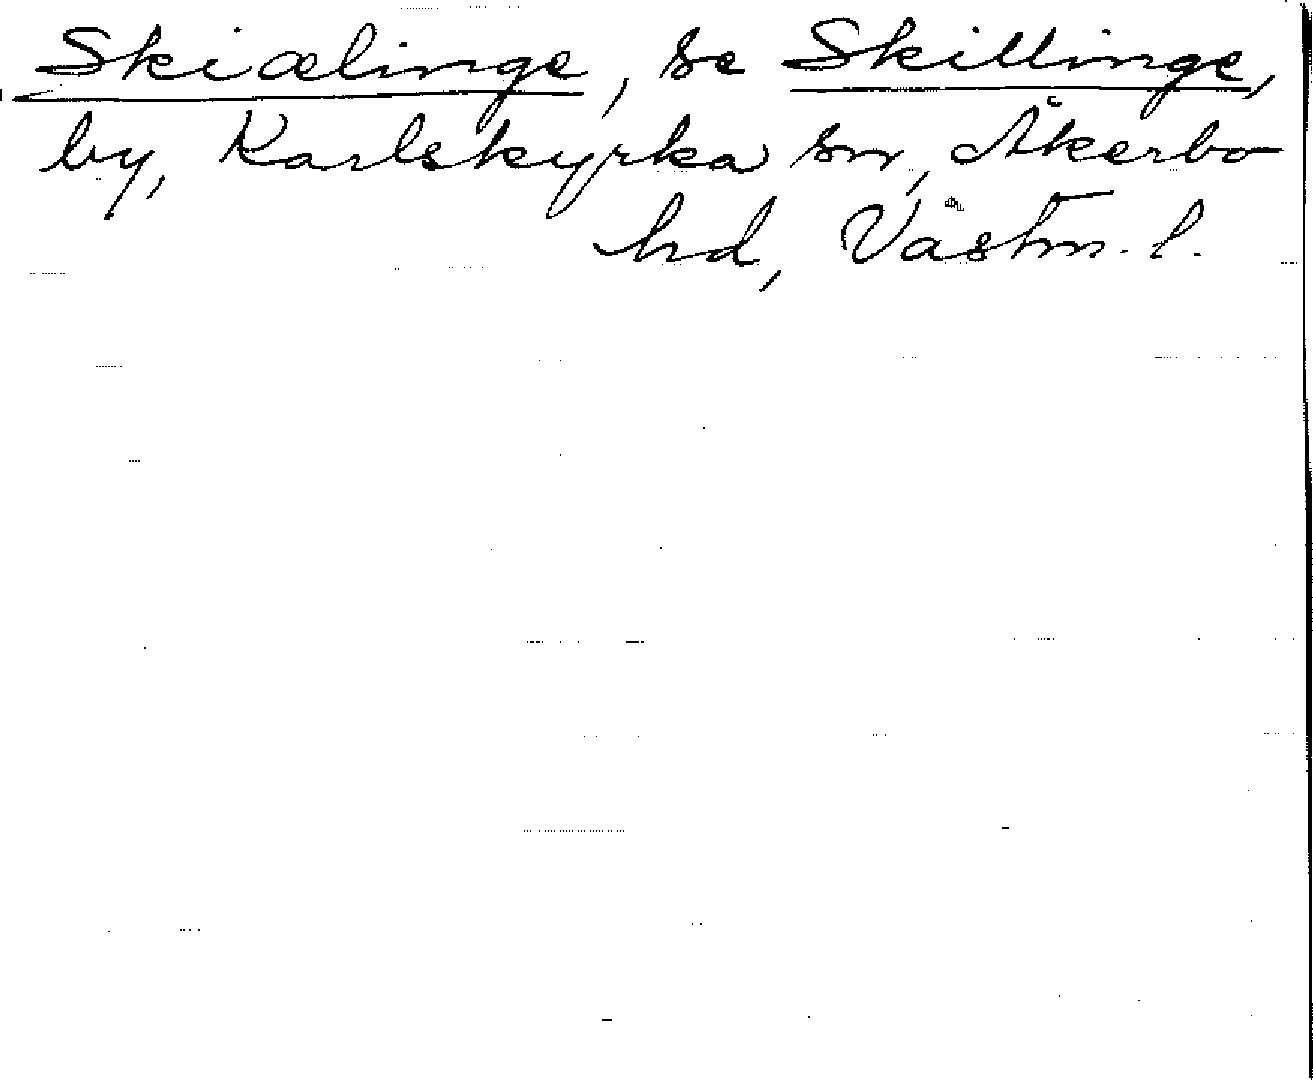 Skiælinge, se Skillinge,
by, Karlskyrka sn, Åkerbo
hd, Västm. l.